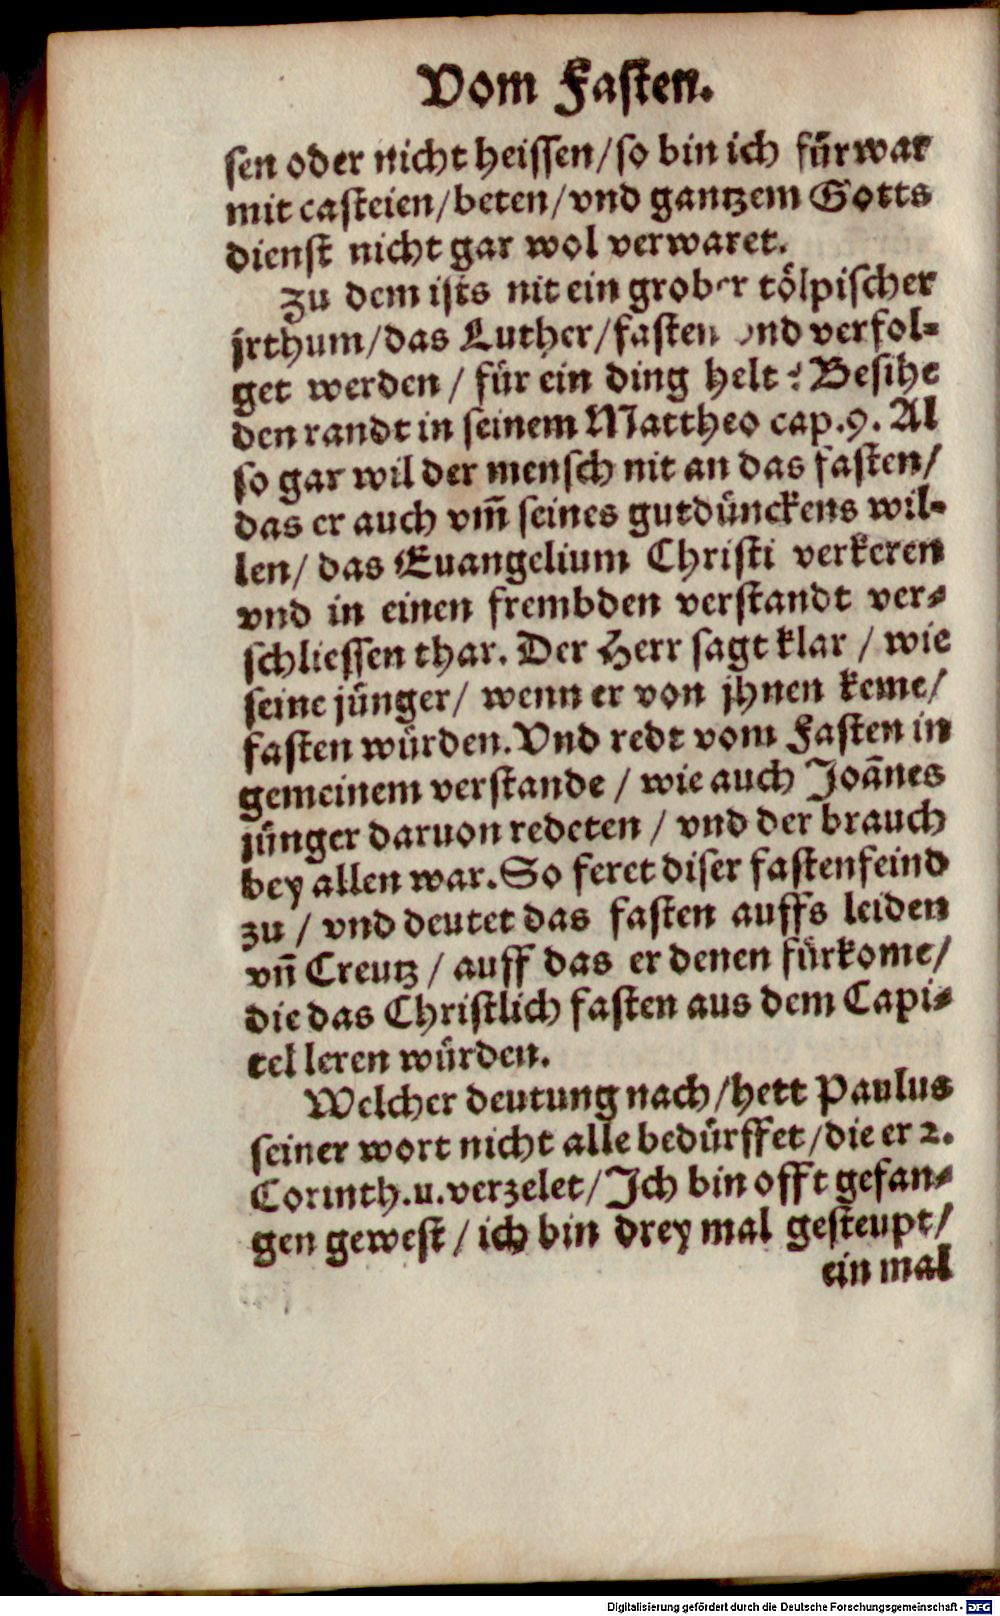 Vom Fasten.
sen oder nicht heissen/so bin ich fürwar
mit casteien/beten/vnd gantzem Gotts
dienst nicht gar wol verwaret.
Zu dem ists nit ein grober tölpischer
jrthum/das Luther/fasten vnd verfol-
get werden / für ein ding helt? Besihe
den randt in seinem Mattheo cap.9. Al
so gar wil der mensch nit an das fasten/
das er auch vm̃ seines gutdünckens wil-
len/ das Euangelium Christi verkeren
vnd in einen frembden verstandt ver-
schliessen thar. Der Herr sagt klar / wie
seine jünger/ wenn er von jhnen keme/
fasten würden. Vnd redt vom Fasten in
gemeinem verstande / wie auch Joãnes
jünger daruon redeten / vnd der brauch
bey allen war. So feret diser fastenfeind
zu / vnd deutet das fasten auffs leiden
vñ Creutz / auff das er denen fürkome/
die das Christlich fasten aus dem Capi-
tel leren würden.
Welcher deutung nach/hett Paulus
seiner wort nicht alle bedürffet/die er 2.
Corinth.11.verzelet/Ich bin offt gefan-
gen gewest / ich bin drey mal gesteupt/
ein mal
Digitalisierung gefördert durch die Deutsche Forschungsgemeinschaft - DFG